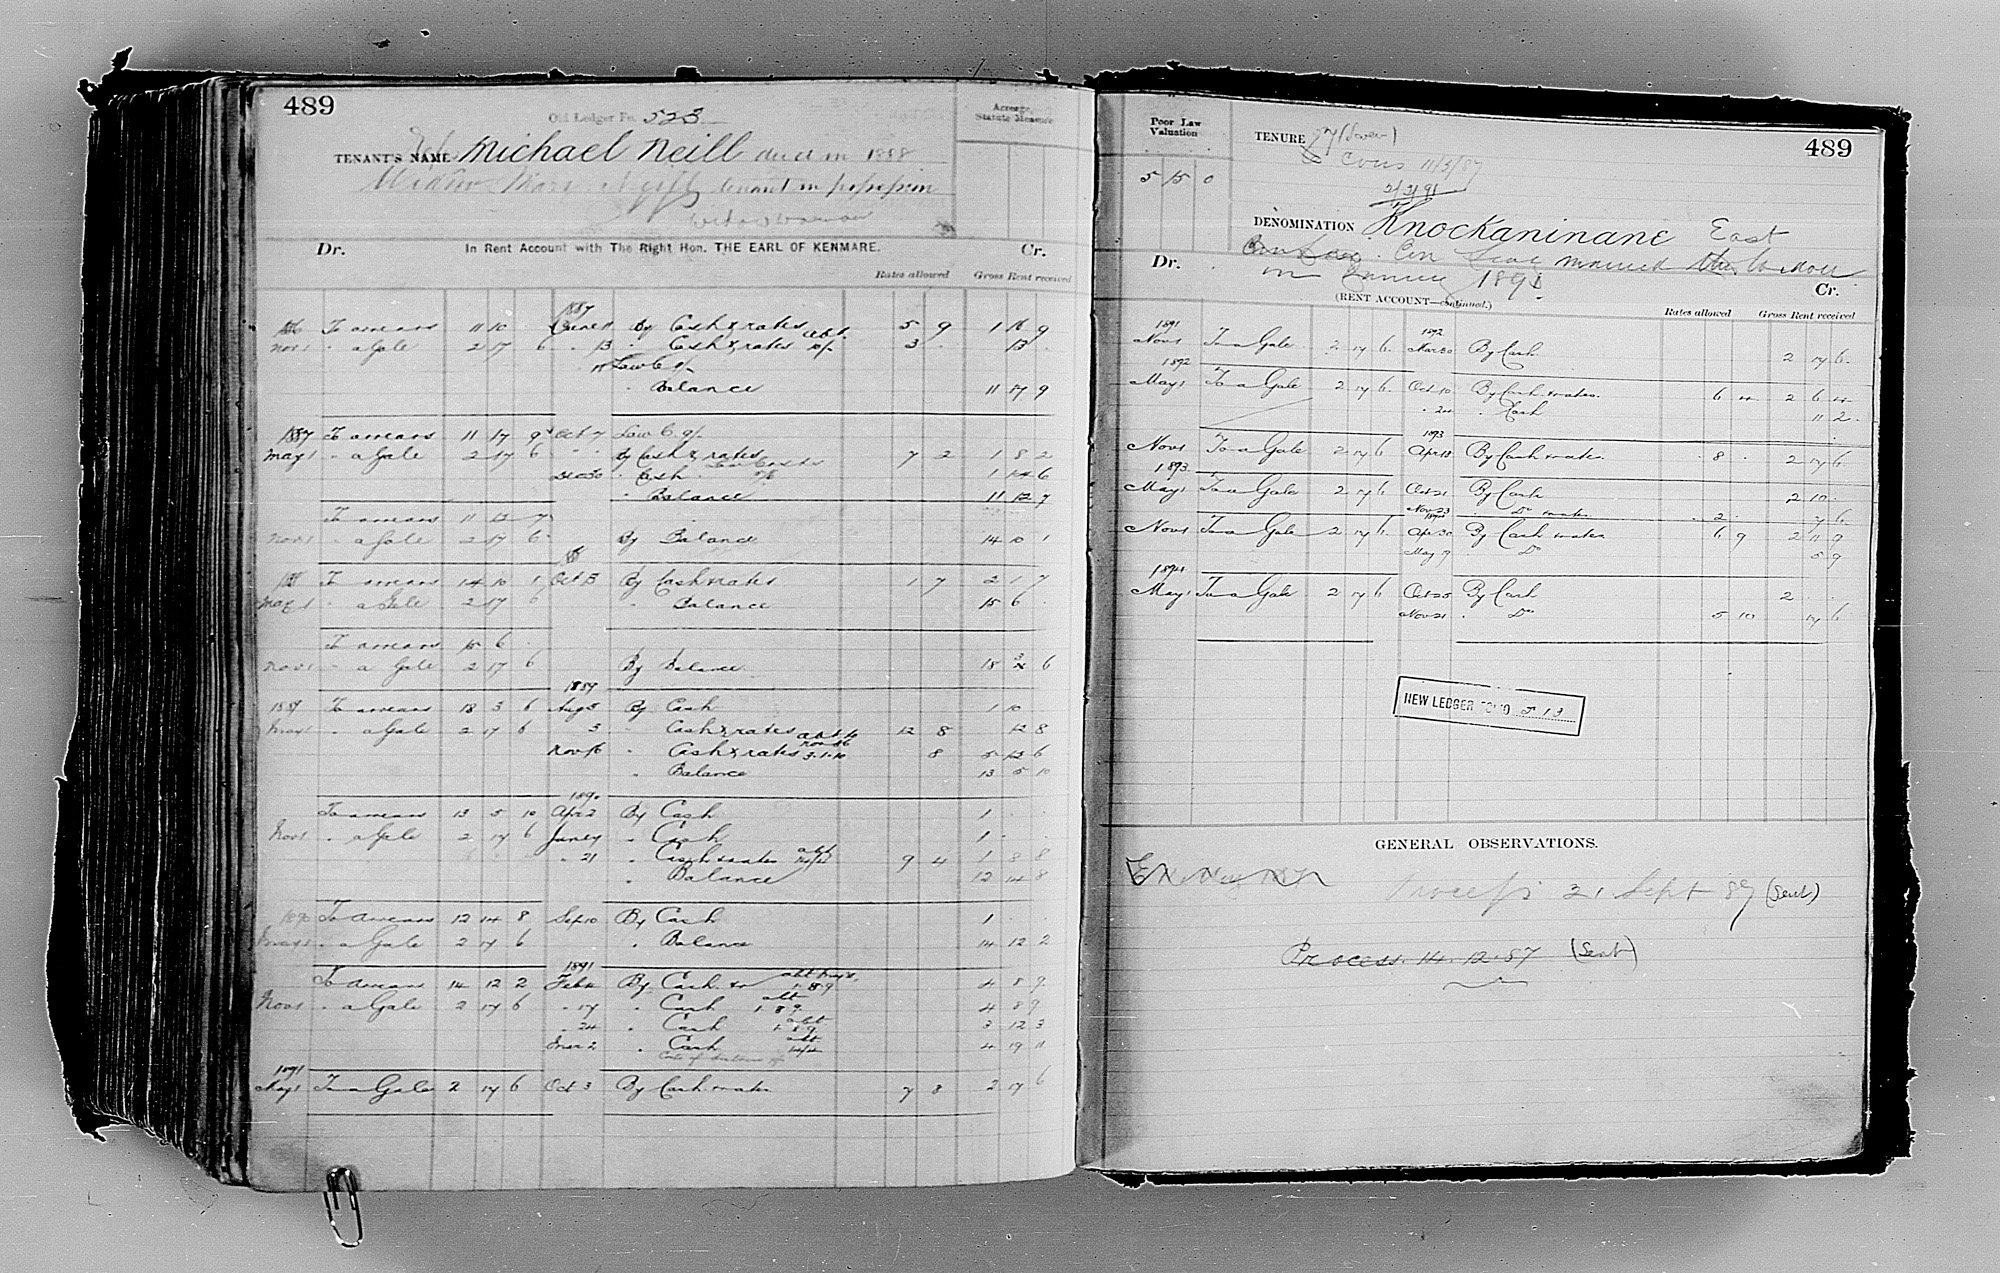 489
Old Ledger Fo. 523
Acreage, Statute Measure
TENANT'S NAME Michael Neill died in 1888
Widow tenant in possession
Dr. In Rent Account with The Right Hon. THE EARL OF KENMARE. Cr.
Rates allowed Gross Rent received
1887
To arrears 11 10 June 11 By Cash & rates 5 9 1 16 9
Nov 1 " a Gale 2 17 6 " 13 " Cash & rates 3 . 13 .
Law C
" Balance 11 17 9
1887 To arrears 11 17 9 Oct 7 Law C
May 1 " a Gale 2 17 6 " " By Cash & rates 7 2 1 8 2
Dec 30 " Cash 1 14 6
" Balance 11 12 7
To arrears 11 12 7
Nov 1 " a Gale 2 17 6 By Balance 14 10 1
To arrears 14 10 1 Oct 13 By Cash & rates 1 7 2 1 7
May 1 " a Gale 2 17 6 " Balance 15 6 .
To arrears 15 6 .
Nov 1 " a Gale 2 17 6 By Balance 18 3 6
1889
1889 To arrears 18 3 6 Aug 3 By Cash 1 10
May 1 " a Gale 2 17 6 3 " Cash & rates 12 8 12 8
Nov 16 " Cash & rates 3.1.10 8 5 13 6
" Balance 13 5 10
1890
To arrears 13 5 10 Apr 2 By Cash 1 . .
Nov 1 " a Gale 2 17 6 June 7 " Cash 1 . .
" 21 " Cash & rates 9 4 1 8 8
" Balance 12 14 8
1890 To arrears 12 14 8 Sep 10 By Cash 1 . .
May 1 " a Gale 2 17 6 " Balance 14 12 2
1891
To arrears 14 12 2 Feb 4 By Cash 1.8.9 4 8 9
Nov 1 " a Gale 2 17 6 " 17 " Cash 1 8 9 4 8 9
" 24 " Cash 1.8.9 3 12 3
Mar 2 " Cash 4 19 11
1891
May 1 To a Gale 2 17 6 Oct 3 By Cash & rates 7 8 2 17 6
Poor Law Valuation
5 15 0
TENURE
Cons 11/3/87
2/2/91
489
DENOMINATION Knockaninane East
Con married the widow
in 1891
Dr. (RENT ACCOUNT—continued.) Cr.
Rates allowed Gross Rent received
1891 1892
Nov 1 To a Gale 2 17 6 Mar 30 By Cash 2 17 6
1892
May 1 To a Gale 2 17 6 Oct 10 By Cash & rates 6 4 2 6 4
" 24 " Cash 11 2
1893
Nov 1 To a Gale 2 17 6 Apr 18 By Cash & rates 8 . 2 17 6
1893
May 1 To a Gale 2 17 6 Oct 21 By Cash 2 10 .
Nov 23 " Do rates 2 . 7 6
1894
Nov 1 To a Gale 2 17 6 Apr 30 By Cash & rates 6 9 2 11 9
May 9 " Do 5 9
1894
May 1 To a Gale 2 17 6 Oct 25 By Cash 2 . .
Nov 21 " Do 5 10 17 6
NEW LEDGER FOLIO 513
GENERAL OBSERVATIONS.
Process 21 Sept 87 (Sent)
Process. 14.12.87 (Sent)